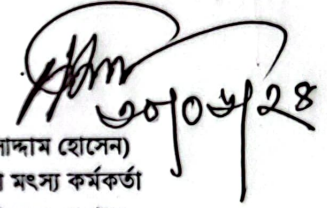 ৩০/০৬/২৪
সাদ্দাম হোসেন)
মৎস্য কর্মকর্তা